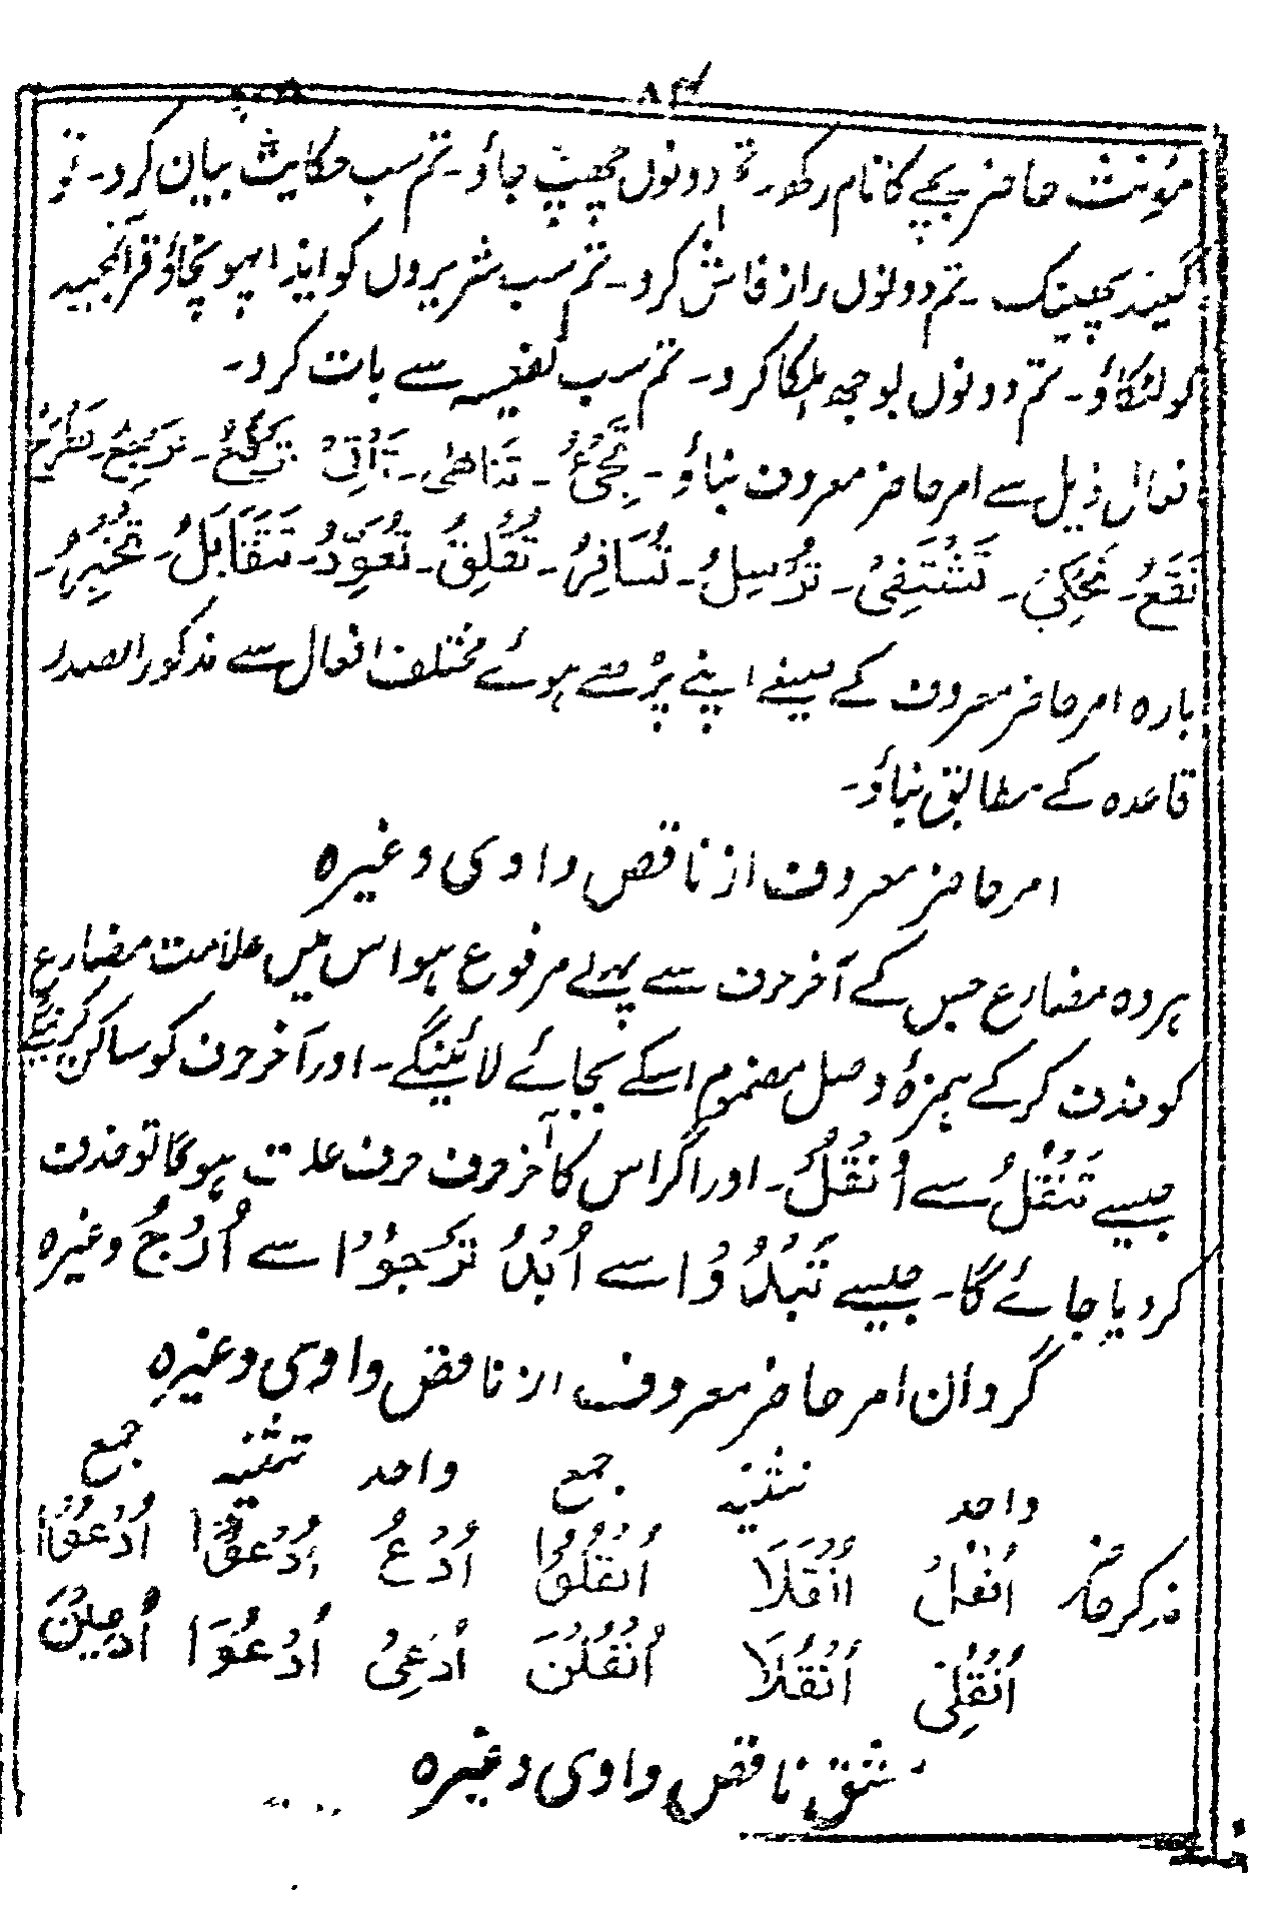 ۸۴
مؤنث حاضر بچے کا نام رکھ۔ تم دونوں چھپ جاؤ۔ تم سب حکایت بیان کرو۔ تو
گیند پھینک ۔ تم دونوں راز فاش کرو۔ تم سب شریروں کو ایذا پہونچاؤ قرآنجید
کو لٹکاؤ۔ تم دونوں بوجھ ہلکا کرو۔ تم سب لغیہ سے بات کرو۔
فعال ذیل سے امر حاضر معروف بناؤ۔ تَجِیْءُ۔ تَنَاهٰی۔ تَأْتِیْ تَرْكَعُ۔ تَرْجِعُ۔ تَطْرَحُ
تَقَعُ۔ تَحْكِیْ۔ تَشْتَفِیْ۔ تُرْسِلُ۔ تُسَافِرُ۔ تُعَلِّقُ۔ تُعَوِّدُ۔ تَتَقَابَلُ۔ تُخْبِرُ۔
بارہ امر حاضر معروف کے صیغے اپنے پڑھے ہوئے مختلف افعال سے مذکور الصدر
قاعدہ کے مطابق بناؤ۔
امر حاضر معروف از ناقص واوی وغیرہ
ہر وہ مضارع جس کے آخر حرف سے پہلے مرفوع ہو اس میں علامت مضارع
کو حذف کر کے ہمزۂ وصل مضموم اسکے بجائے لائینگے۔ اور آخر حرف کو ساکن کرینگے
جیسے تَنْقُلُ سے اُنْقُلْ۔ اور اگر اس کا آخر حرف حرف علت ہو گا تو حذف
کر دیا جائے گا۔ جیسے تَبْدُوْا سے اُبْدُ تَرْجُوْا سے اُرْجُ وغیرہ
گردان امر حاضر معروف از ناقص واوی وغیرہ
واحد تثنیہ جمع واحد تثنیہ جمع
مذکر حاضر اُنْقُلْ اُنْقُلَا اُنْقُلُوْا اُدْعُ اُدْعُوَا اُدْعُوْا
اُنْقُلِیْ اُنْقُلَا اُنْقُلْنَ اُدْعِیْ اُدْعُوَا
مشق ناقص واوی وغیرہ